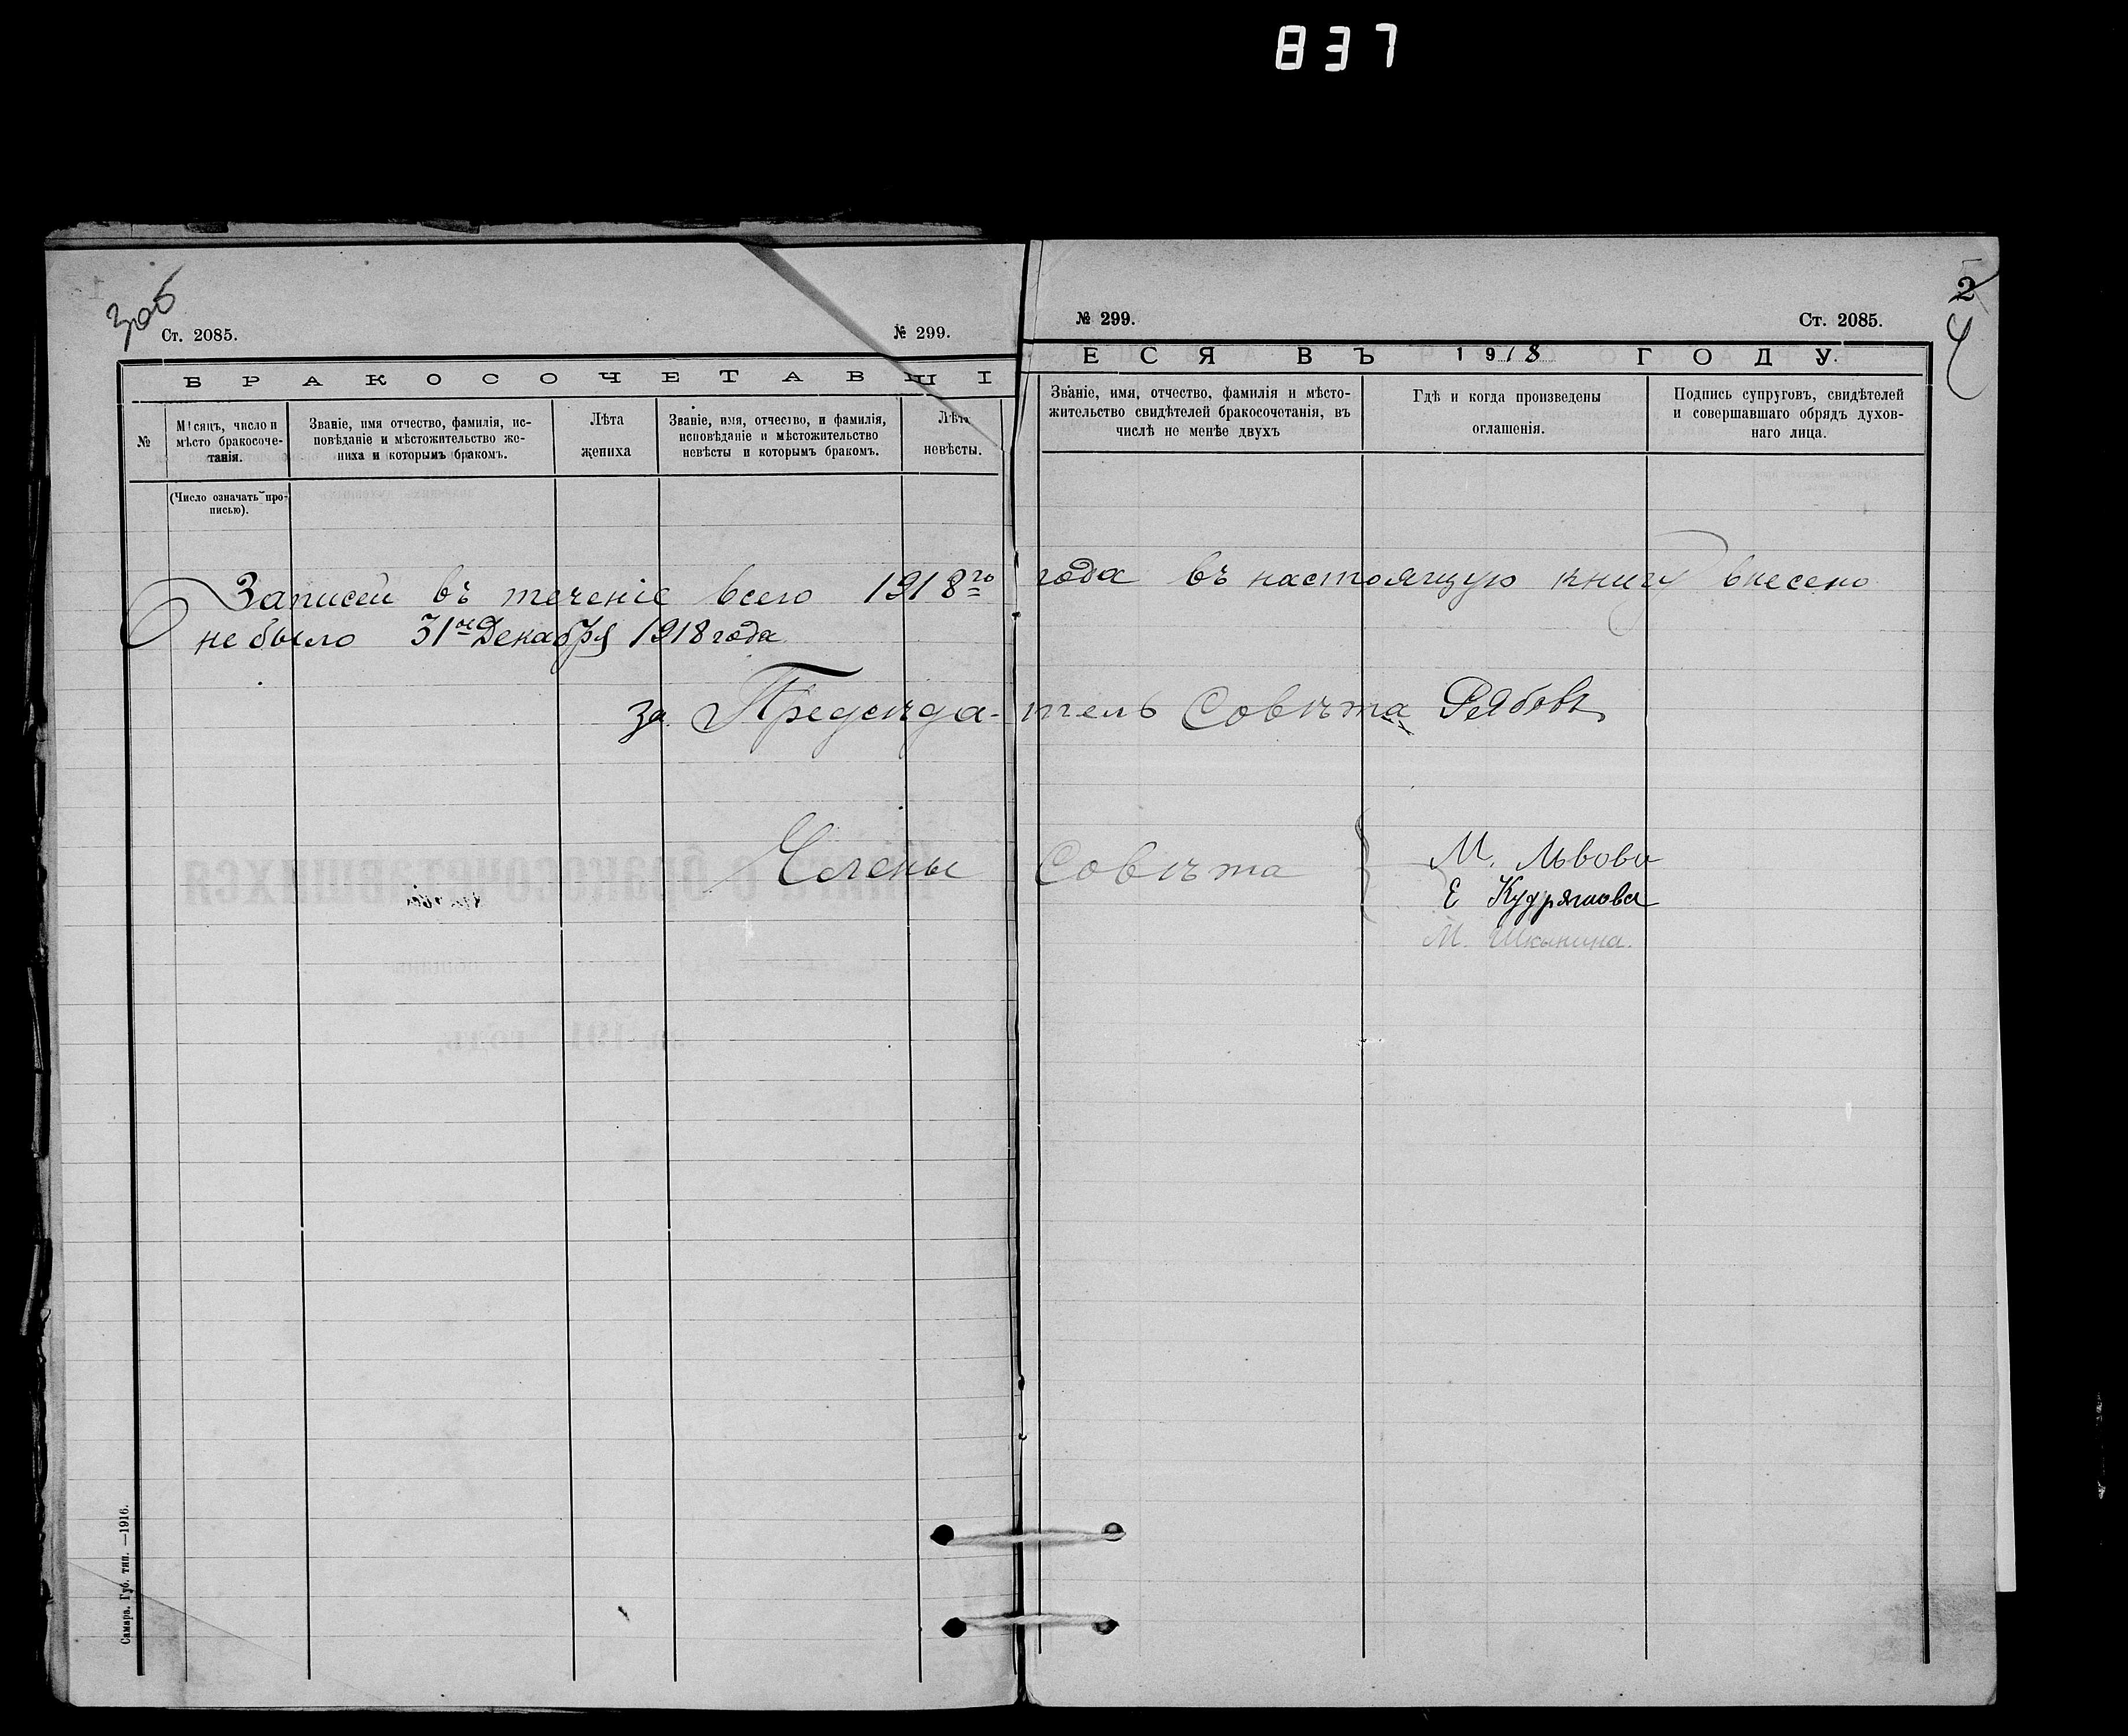 837
3об
Ст. 2085.
№ 299.
БРАКОСОЧЕТАВШІ
№
Мѣсяцъ, число и
мѣсто бракосоче-
танія.
(Число означать про-
писью).
Званіе, имя отчество, фамилія, ис-
повѣданіе и мѣстожительство же-
ниха и которымъ бракомъ.
Лѣта
жениха
Званіе, имя, отчество, и фамилія,
исповѣданіе и мѣстожительство
невѣсты и которымъ бракомъ.
Лѣта
невѣсты.
№ 299.
Ст. 2085.
2
4
ЕСЯ ВЪ 1918 ГОДУ.
Званіе, имя, отчество, фамилія и мѣсто-
жительство свидѣтелей бракосочетанія, въ
числѣ не менѣе двухъ
Гдѣ и когда произведены
оглашенія.
Подпись супруговъ, свидѣтелей
и совершавшаго обрядъ духов-
наго лица.
Записей въ теченіе всего 1918го года въ настоящую книгу внесено
не было 31ое Декабря 1918 года
за Предсѣда-тель Совѣта Рябовъ
Члены Совѣта
М. Львова
Е Кудряшова
М. Шканина.
Самара, Губ. тип. —1916.